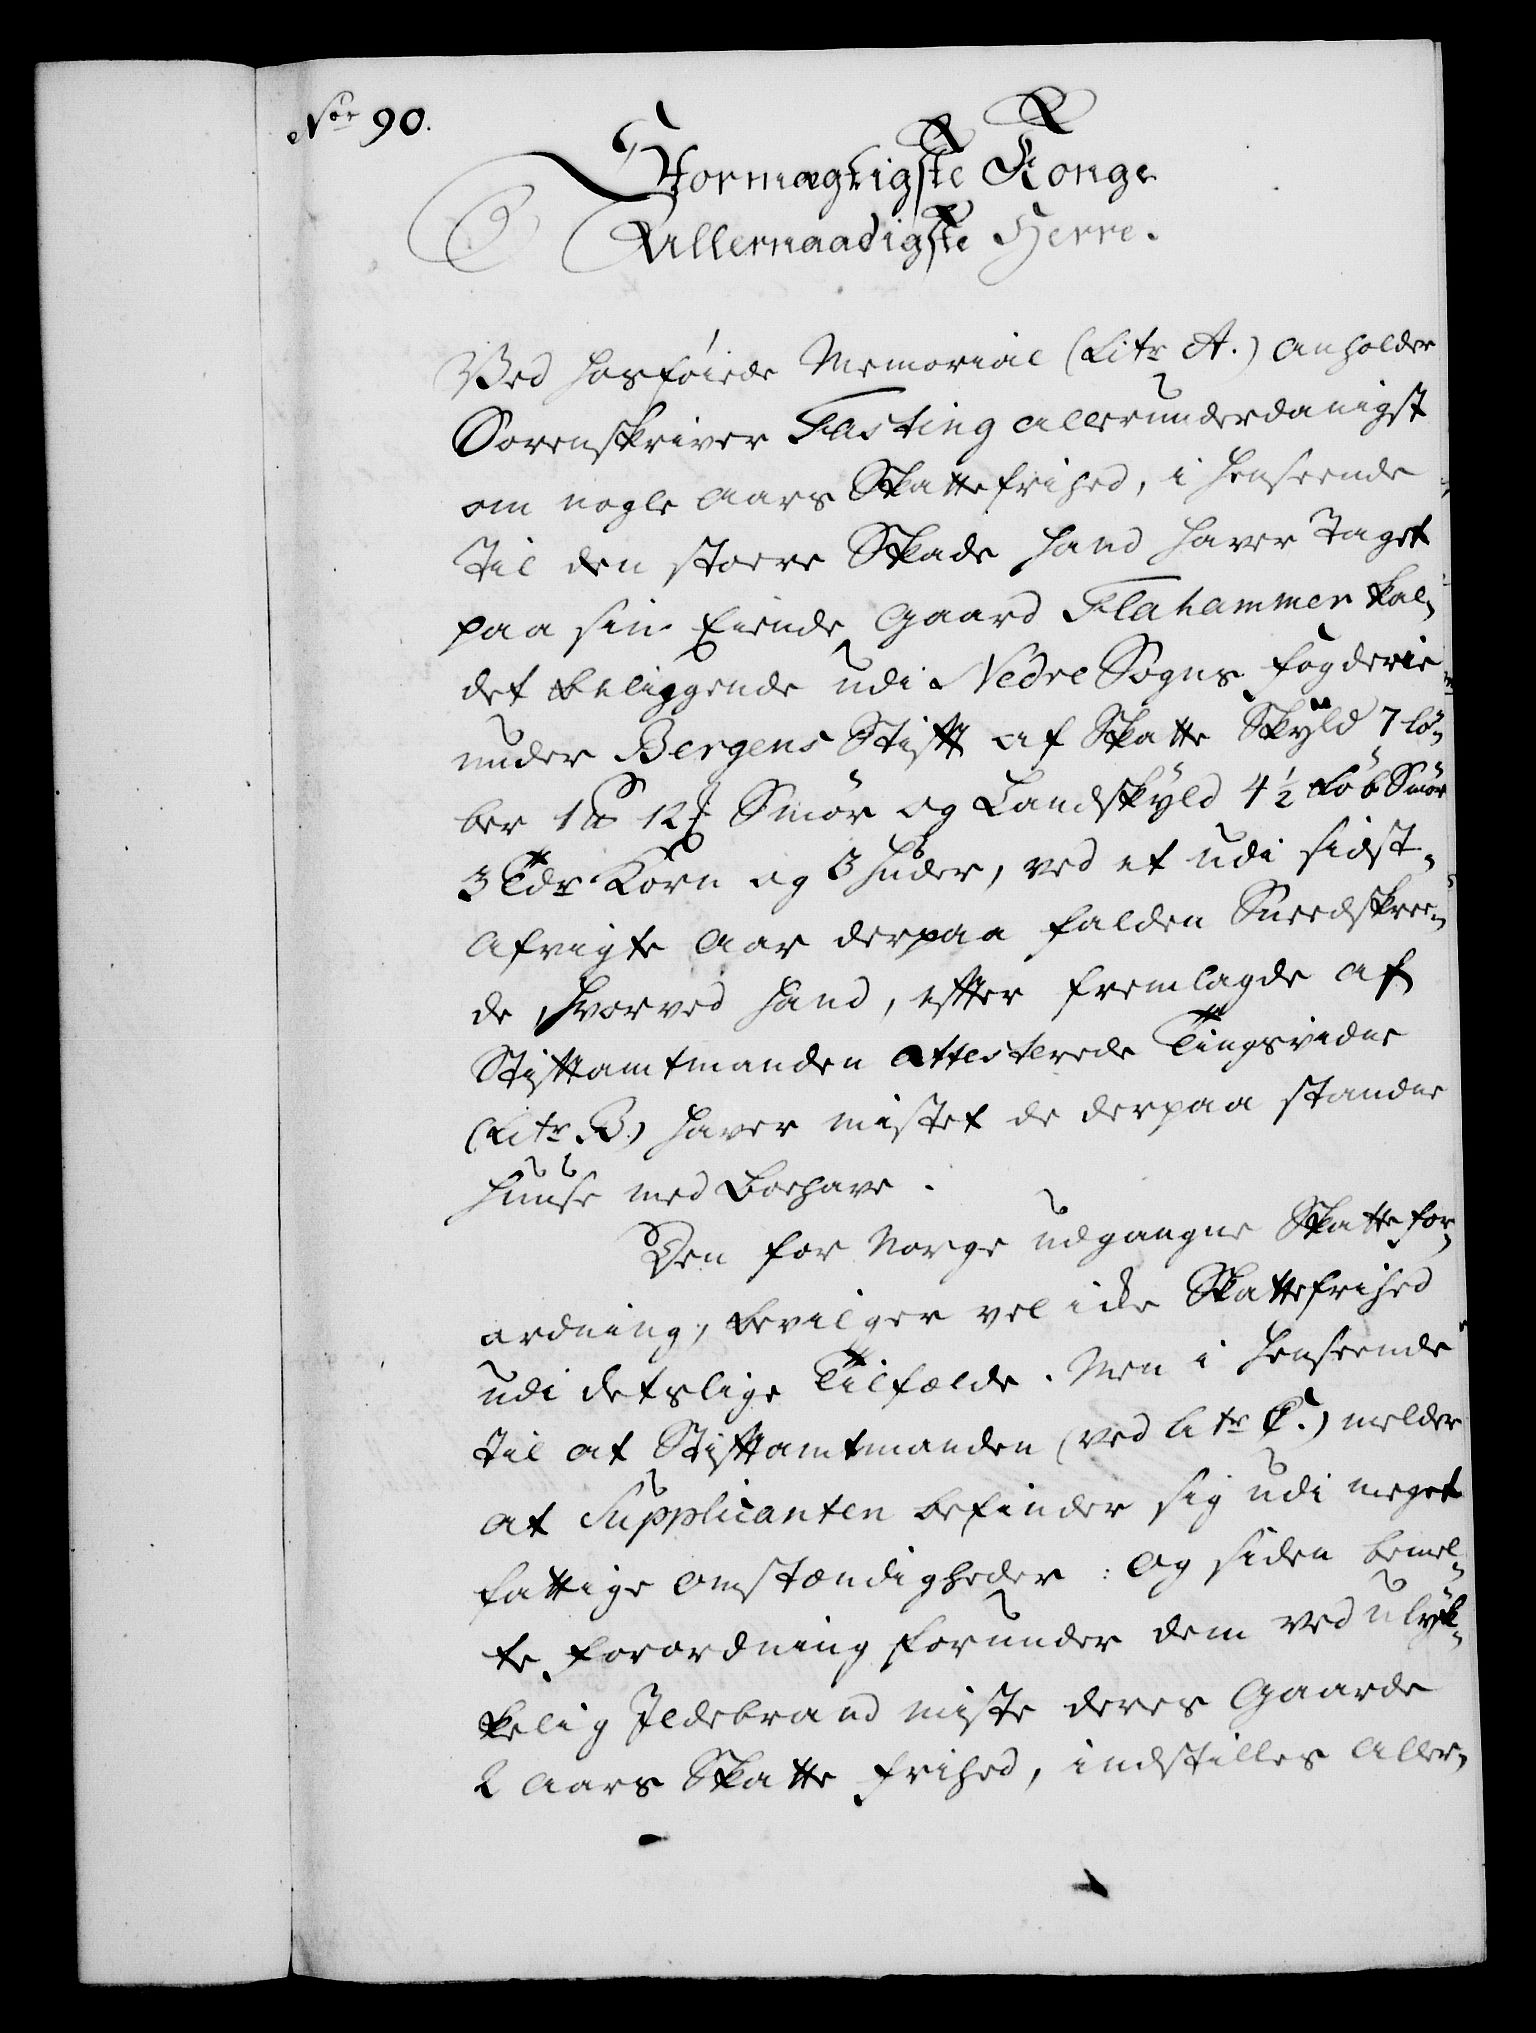 Nor 90.
Stormægtigste Konge
Allernaadigste Herre.
Ved hosføiede Memorial (Litr A.) anholder
Sorenskriver Fasting allerunderdanigst
om nogle Aars Skattefrihed, i henseende
til den stoere Skade hand haver taget
paa sin Eiende Gaard Flahammer kal-
det beliggende udi Nedre Sogns fogderie
under Bergens Stift af Skatte Skyld 7 lø-
ber 1 12 Smør og Landskyld 4½ Løb Smør
3 Tdr Korn og 3 huder, ved et udi sidst-
afvigte Aar derpaa falden Sneedskree-
de, hvorved hand, efter fremlagde af
Stiftamtmanden attesterede Tingsvidne
(Litr B.) haver mistet de derpaa standne
huuse med Boehave.
Den for Norge udgangne Skattefor-
ordning, bevilger vel icke Skattefrihed
udi detslige Tilfælde. Men i henseende
til at Stiftamtmanden (ved litr C.) melder
at Supplicanten befinder sig udi meget
fattige omstændigheder: og siden bemel-
te forordning forunder dem ved ulyk-
kelig Ildebrand miste deres Gaarde
2 Aars Skatte frihed, indstilles Aller-